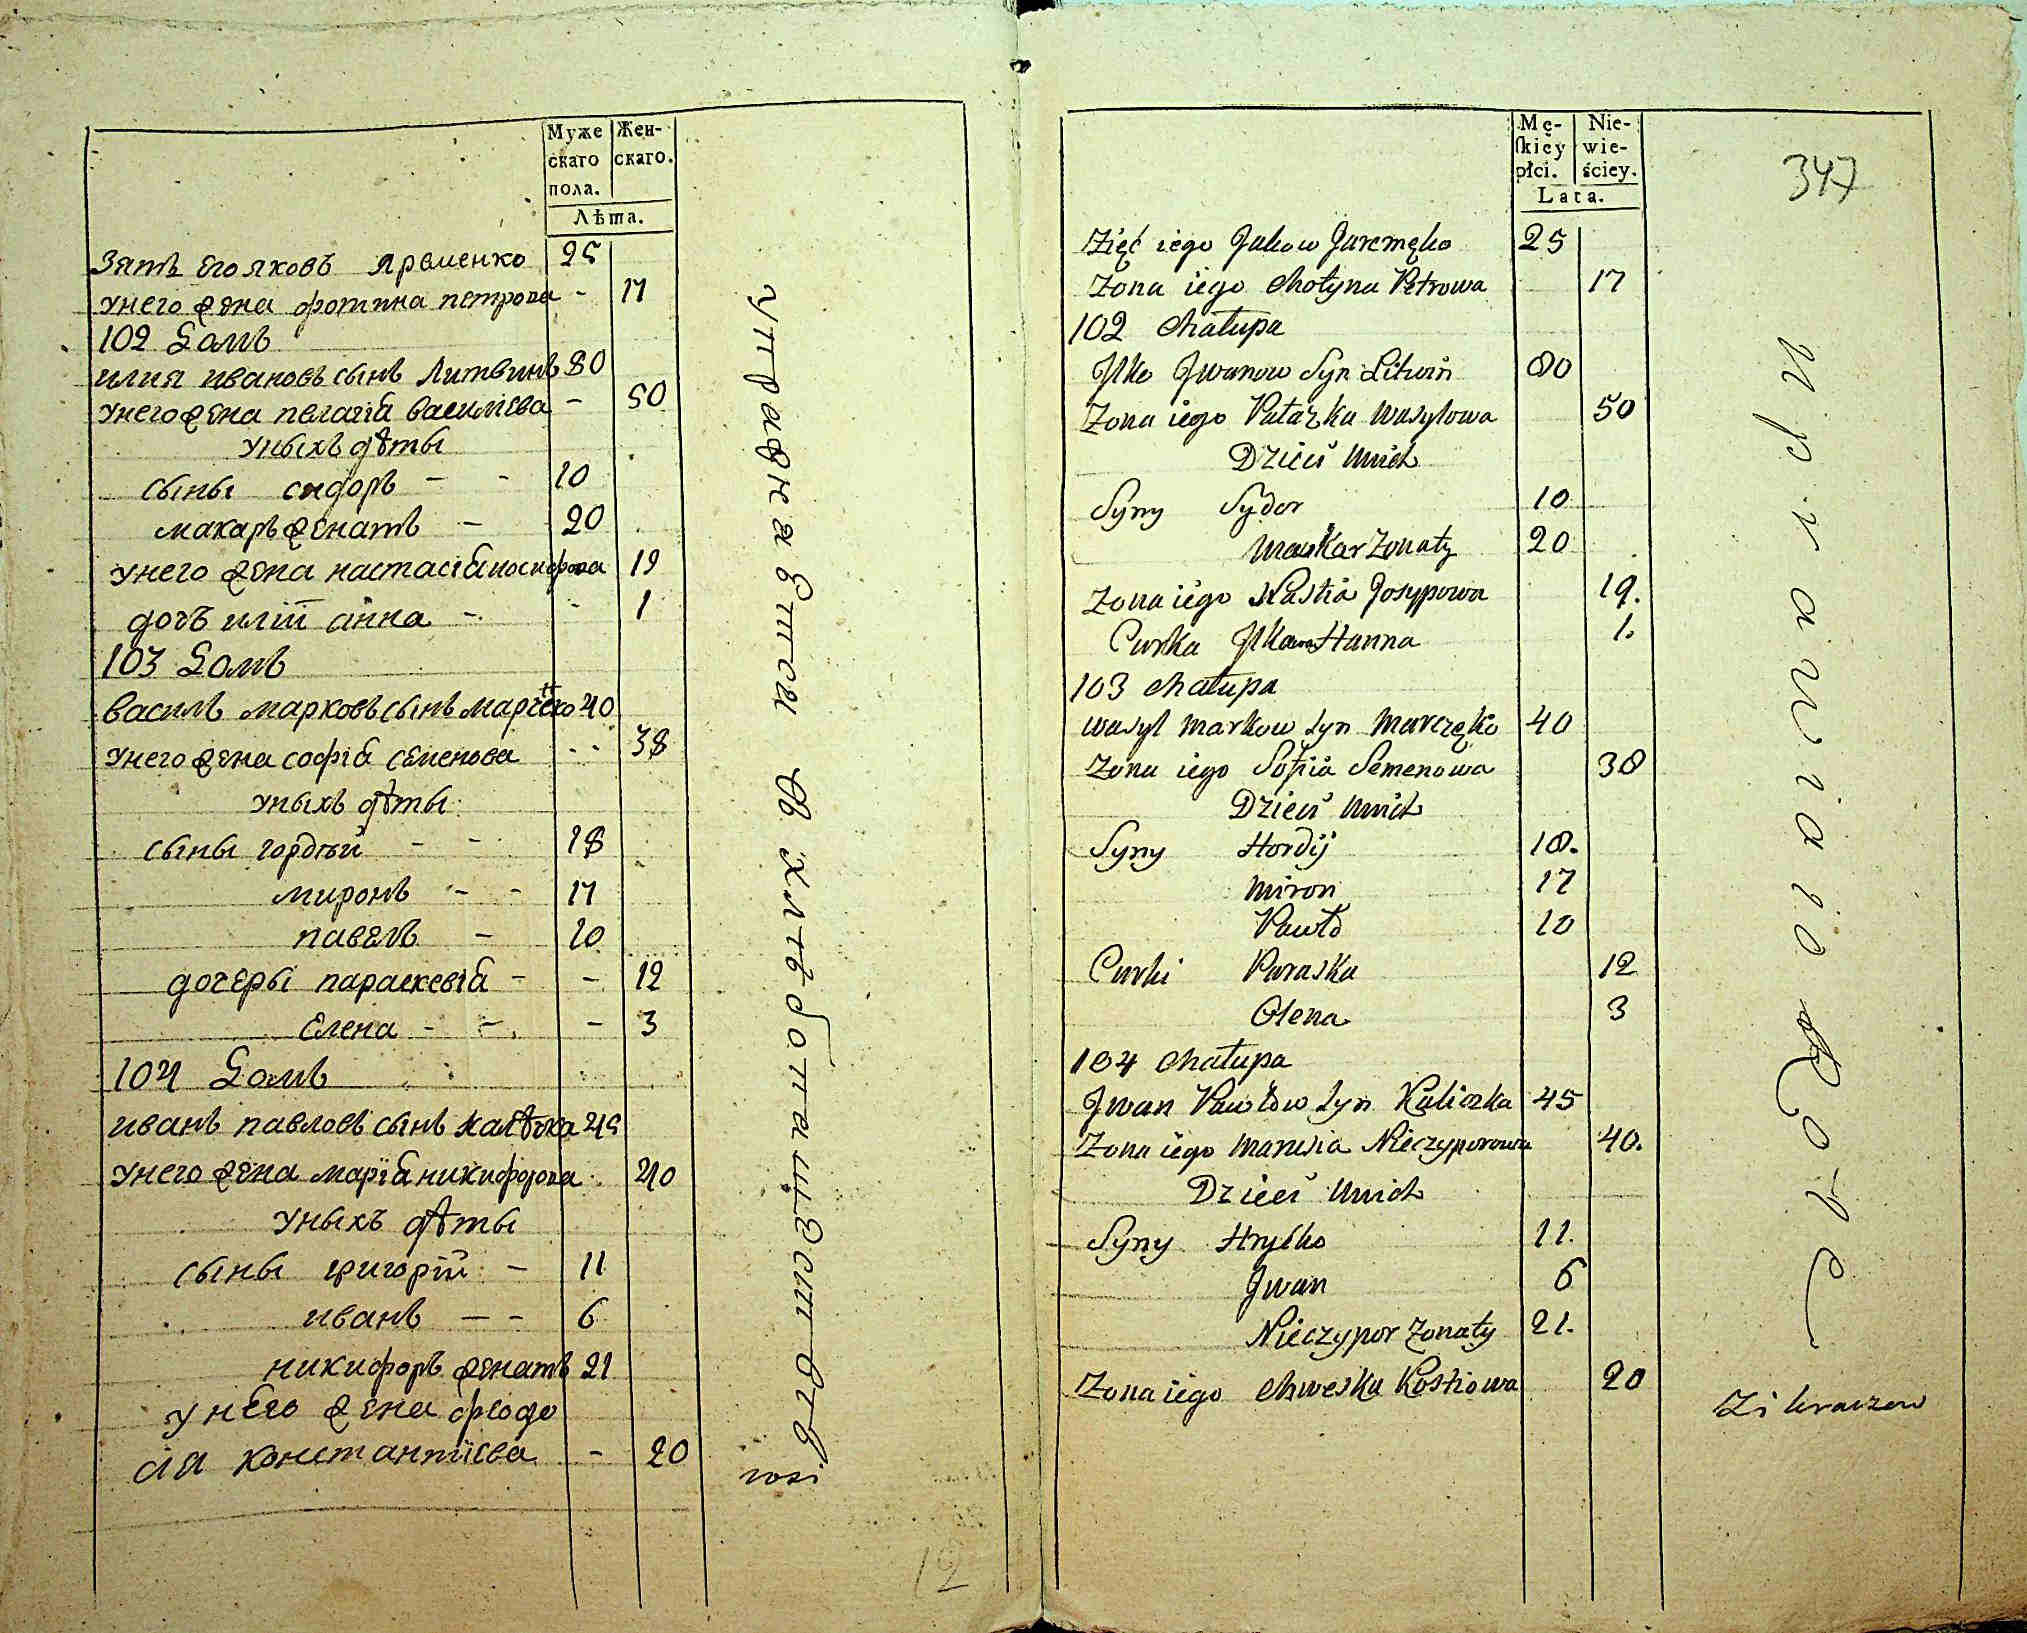 Муже
скаго
пола.
Жен-
скаго.
Лѣта.
Зять его яковъ яременко 25
унего жена фотина петрова - 17
102 Домъ
илия ивановъ сынъ Литвинъ 80
унего жена пелагіа василіева - 50
уныхъ дѣты
сыны сидоръ - - 10
макаръ женатъ - 20
унего жена настасіа иосифова 19
дочъ иліи анна - - 1
103 Домъ
василъ марковъ сынъ марченко 40
унего жена софіа семенова - - 38
уныхъ дѣты
сыны гордѣй - - 18
миронъ - - 17
павелъ - 10
дочеры параскевіа - - 12
Елена - - - 3
104 Домъ
иванъ павловъ сынъ калѣчка 45
унего жена маріа никифорова 40
уныхъ дѣты
сыны григорій - 11
иванъ - - 6
никифоръ женатъ 21
унего жена феодо
сія константіева - 20
упражнаются въ хлѣбопашествѣ
12
Mę-
skiéy
płci.
Nie-
wie-
ściey.
Lata.
347
Zięć iego Jakow Jaremęko 25
Zona iego Chotyna Petrowa 17
102 Chałupa
Jlko Jwanow Syn Litwin 80
Zona iego Pałażka Wasylowa 50
Dzieci Unich
Syny Sydor 10
Makar Zonaty 20
Zona iego Nastia Josypowa 19.
Curka Jlkowa Hanna 1.
103 Chałupa
Wasyl Markow Syn Marczęko 40
Zona iego Sofia Semenowa 38
Dzieci Unich
Syny Hordij 18.
Miron 17
Pawło 10
Curki Paraska 12
Olena 3
104 Chałupa
Jwan Pawłow Syn Kaliczka 45
Zona iego Marusia Nieczyporowa 40.
Dzieci Unich
Syny Hryćko 11.
Jwan 6
Nieczypor Zonaty 21.
Zona iego Chweska Kostiowa 20
Uprawiaią Rolę